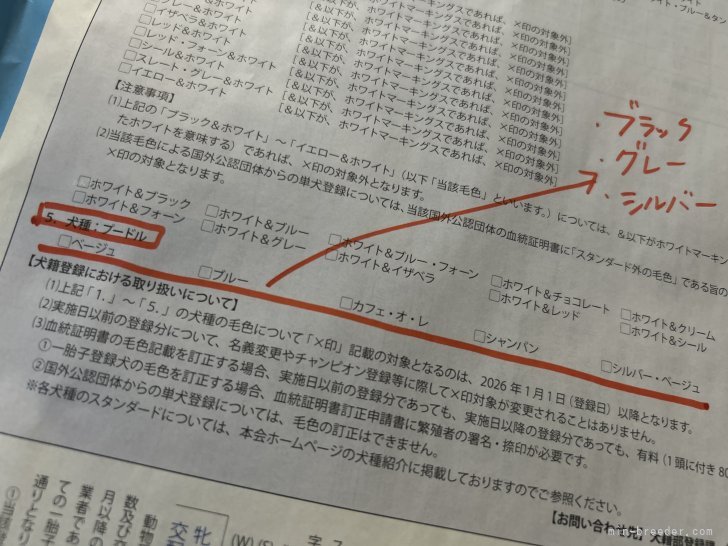 ト・ブルー&タン
□グレー&ホワイト [&以下が、ホワイトマーキングスであれば、×印の対象外]
□イザベラ&ホワイト [&以下が、ホワイトマーキングスであれば、×印の対象外]
□レッド&ホワイト [&以下が、ホワイトマーキングスであれば、×印の対象外]
□レッド・フォーン&ホワイト [&以下が、ホワイトマーキングスであれば、×印の対象外]
□シール&ホワイト [&以下が、ホワイトマーキングスであれば、×印の対象外]
□スレート・グレー&ホワイト [&以下が、ホワイトマーキングスであれば、×印の対象外]
□イエロー&ホワイト [&以下が、ホワイトマーキングスであれば、×印の対象外]
【注意事項】
(1)上記の「ブラック&ホワイト」~「イエロー&ホワイト」(以下「当該毛色」といいます。)については、&以下がホワイトマーキン
たホワイトを意味する)であれば、×印の対象外となります。
(2)当該毛色による国外公認団体からの単犬登録については、当該国外公認団体の血統証明書に「スタンダード外の毛色」である旨の
×印の対象となります。
□ホワイト&ブラック □ホワイト&ブルー □ホワイト&ブルー・フォーン □ホワイト&チョコレート □ホワイト&クリーム
□ホワイト&フォーン □ホワイト&グレー □ホワイト&イザベラ □ホワイト&レッド □ホワイト&シール
5. 犬種:プードル
□ベージュ □ブルー □カフェ・オ・レ □シャンパン □シルバー・ベージュ
・ブラック
・グレー
・シルバー
【犬籍登録における取り扱いについて】
(1)上記「1.」~「5.」の犬種の毛色について「×印」記載の対象となるのは、2026年1月1日(登録日)以降となります。
(2)実施日以前の登録分について、名義変更やチャンピオン登録等に際して×印対象が変更されることはありません。
(3)血統証明書の毛色記載を訂正する場合、実施日以前の登録分であっても、実施日以降の登録分であっても、有料(1頭に付き80
①一胎子登録犬の毛色を訂正する場合、血統証明書訂正申請書に繁殖者の署名・捺印が必要です。
②国外公認団体からの単犬登録については、毛色の訂正はできません。
※各犬種のスタンダードについては、本会ホームページの犬種紹介に掲載しておりますのでご参照ください。
【お問い合わせ先】犬籍部登録課
動物
数及び交
月以降の
業者であ
ての一胎子
通りとなり
①当該
牝
交
(W)
字
min-breeder.com